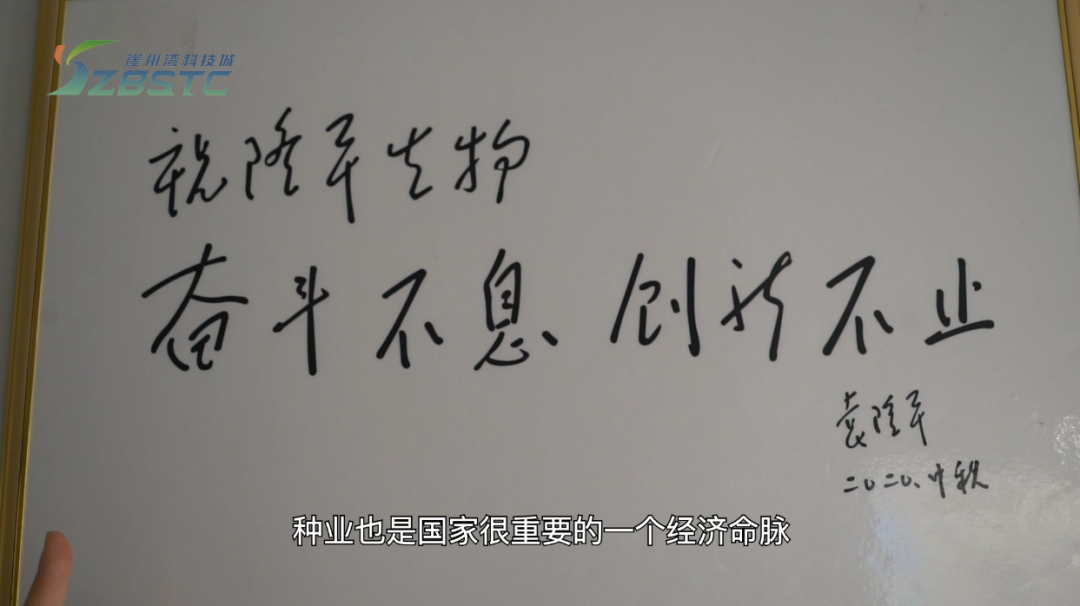 崖州湾科技城
YZBSTC
祝隆平生物
奋斗不息、创新不止
袁隆平
二〇二〇、中秋
种业也是国家很重要的一个经济命脉